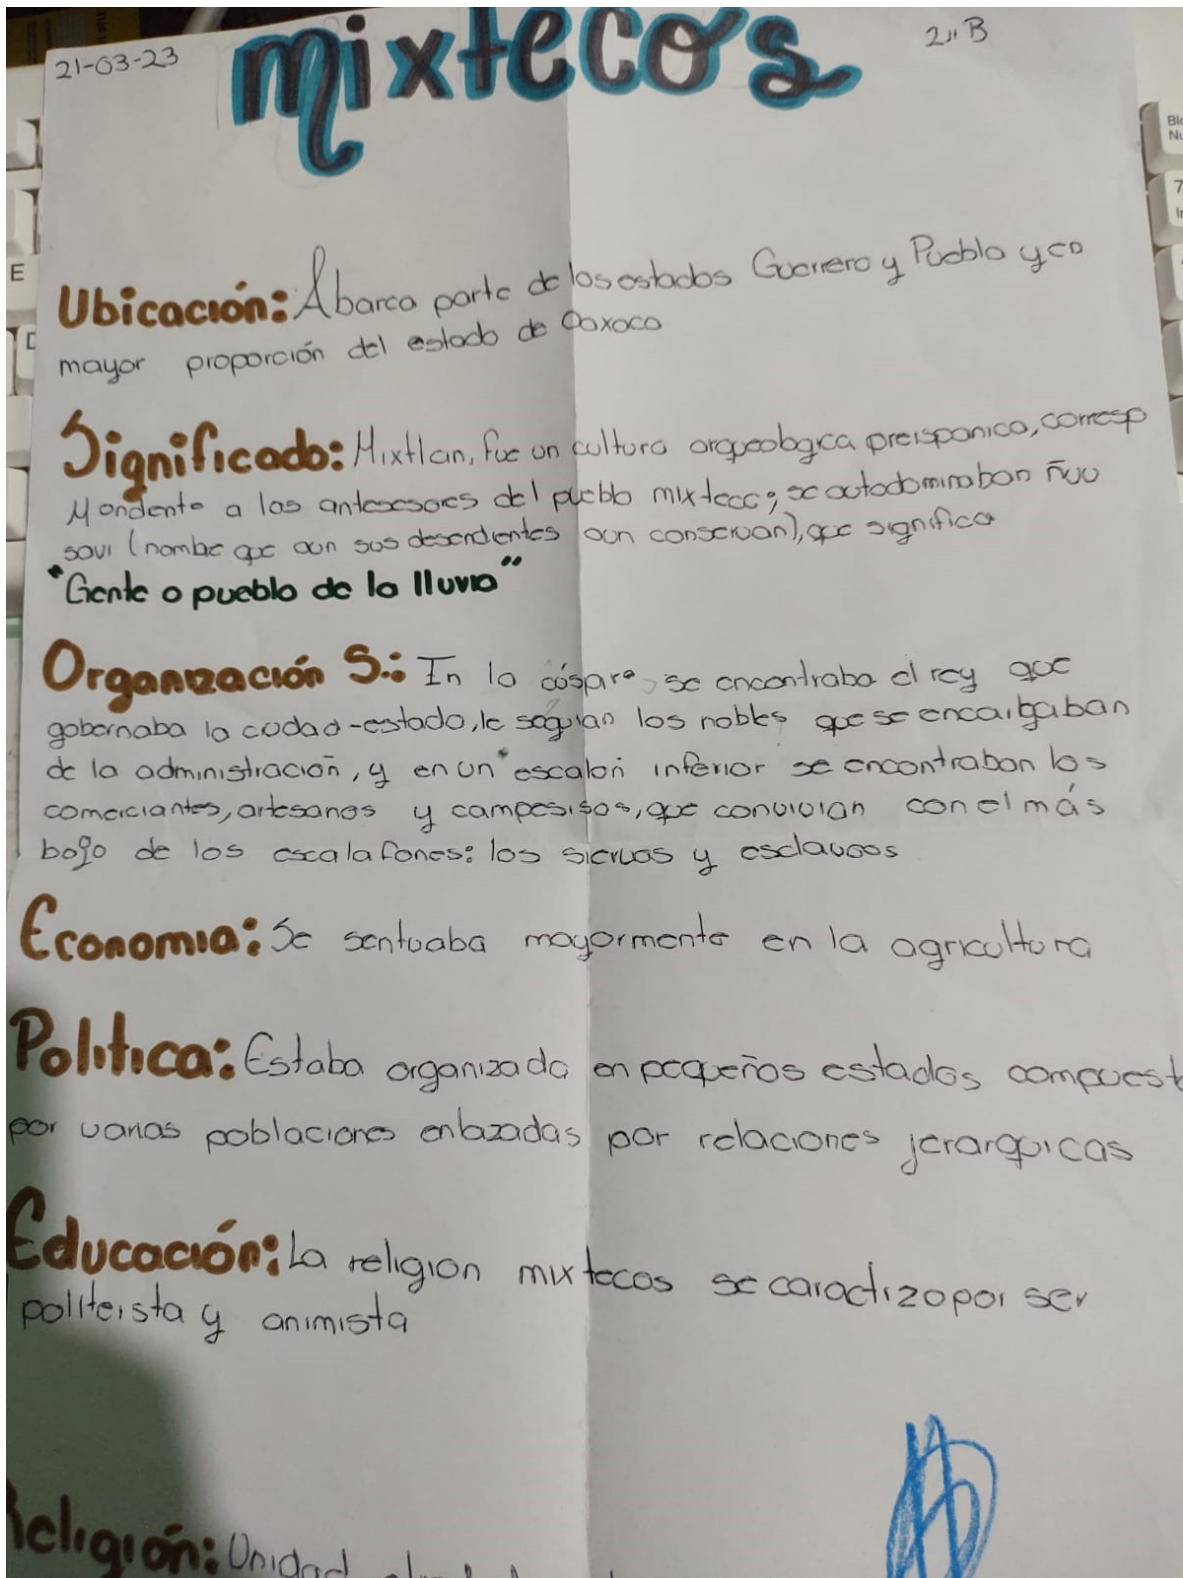 21-03-23
mixtecos
2,, B
Ubicación: Abarca parte de los estados Guerrero y Puebla y co
mayor proporción del estado de Oaxaca
Significado: Mixtlan, fue un cultura arqueologica preispanica, corresp
Mondente a los antesesores del pueblo mixteco; se autodominaban ñuu
savi (nombe que aun sus desendientes aun conservan), que significa
"Gente o pueblo de la lluvia"
Organización S.: In la cúspare se encontraba el rey que
gobernaba la ciudad-estado, le seguian los nobles que se encargaban
de la administración, y en un escalón inferior se encontraban los
comerciantes, artesanos y campesisos, que convivian con el más
bajo de los escalafones: los siervos y esclavoos
Economia: Se sentuaba mayormente en la agricultura
Politica: Estaba organizada en pequeños estados compuest
por varias poblaciones enlazadas por relaciones jerarquicas
Educación: La religion mixtecos se caractizo por ser
politeista y animista
Religión: Unidad